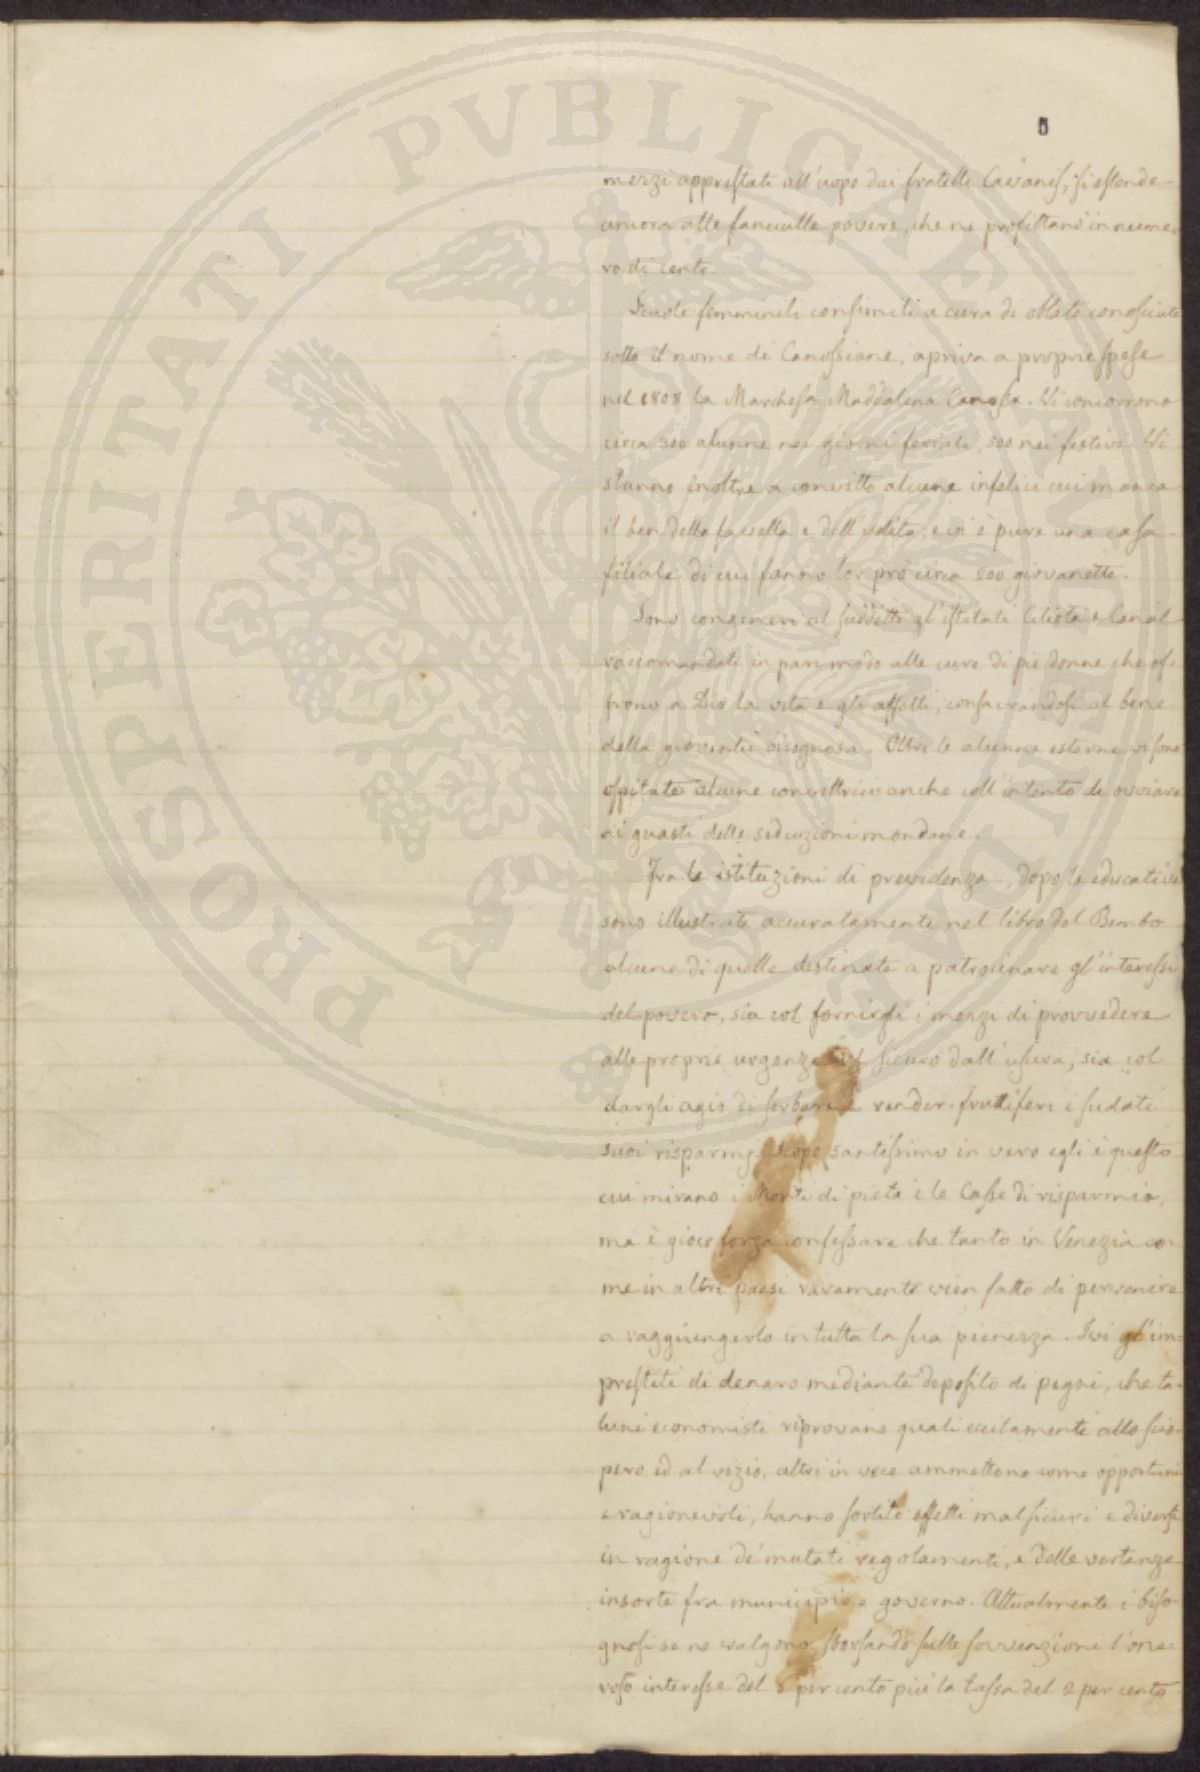 PROSPERITATI PVBLICAE AVGENDAE
mezzi apprestati all'uopo dai fratelli Cavanis, si estende
ancora alle fanciulle povere, che ne profittano in nume-
ro di cento.
Scuole femminili consimili a cura di oblate conosciute
sotto il nome di Canossiane, apriva a proprie spese
nel 1808 la Marchesa Maddalena Canossa. Vi concorrono
circa 300 alunne nei giorni feriali, 500 nei festivi. Vi
stanno inoltre a convitto alcune infelici cui manca
il ben della favella e dell'udito, e vi è pure una casa
filiale di cui fanno lor prò circa 300 giovanette.
Sono congeneri al suddetto gl'istituti Ciliota e Canal
raccomandati in pari modo alle cure di pie donne che of-
frono a Dio la vita e gli affetti, consacrandosi al bene
della gioventù bisognosa. Oltre le alunne esterne vi sono
ospitate alcune convittrici anche coll'intento di ovviare
ai guasti delle seduzioni mondane.
Fra le istituzioni di previdenza, dopo le educative
sono illustrate accuratamente nel libro del Bembo
alcune di quelle destinate a patrocinare gl'interessi
del povero, sia col fornirgli i mezzi di provvedere
alle proprie urgenze al sicuro dall'usura, sia col
dargli agio di serbare e render fruttiferi i sudati
suoi risparmj. Scopo santissimo in vero egli è questo
cui mirano i Monti di pietà e le Casse di risparmio,
ma è giocoforza confessare che tanto in Venezia co-
me in altri paesi raramente vien fatto di pervenire
a raggiungerlo in tutta la sua pienezza. Ivi gl'im-
prestiti di denaro mediante deposito di pegni, che ta-
luni economisti riprovano quali eccitamenti allo scio-
pero ed al vizio, altri in vece ammettono come opportuni
e ragionevoli, hanno sortito effetti mal sicuri e diversi
in ragione de' mutati regolamenti, e delle vertenze
insorte fra municipio e governo. Attualmente i biso-
gnosi se ne valgono sborsando sulle sovvenzioni l'one-
roso interesse del per cento più la tassa del 2 per cento